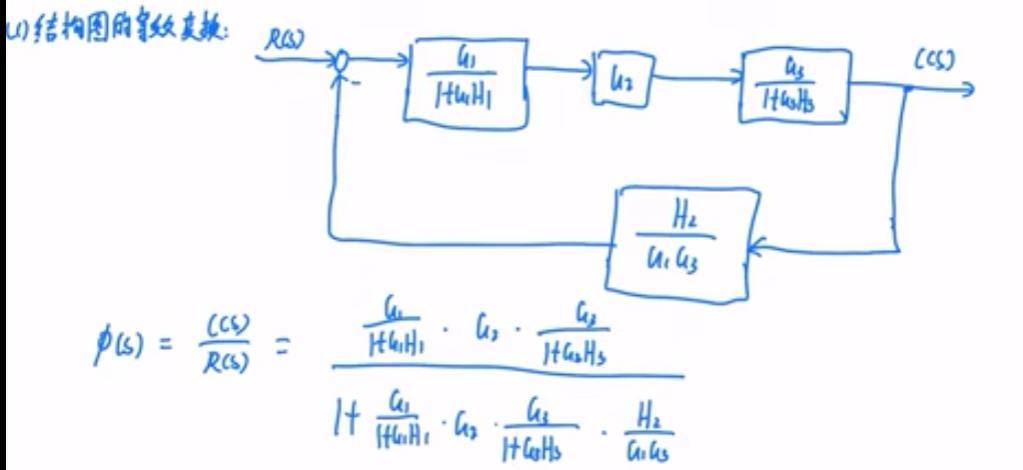 (1)结构图的等效变换:
R(s) G₁/(1+G₁H₁) G₂ G₃/(1+G₃H₃) C(s)
-
H₂/(G₁G₃)
φ(s) = C(s)/R(s) = (G₁/(1+G₁H₁) · G₂ · G₃/(1+G₃H₃)) / (1+ G₁/(1+G₁H₁) · G₂ · G₃/(1+G₃H₃) · H₂/(G₁G₃))